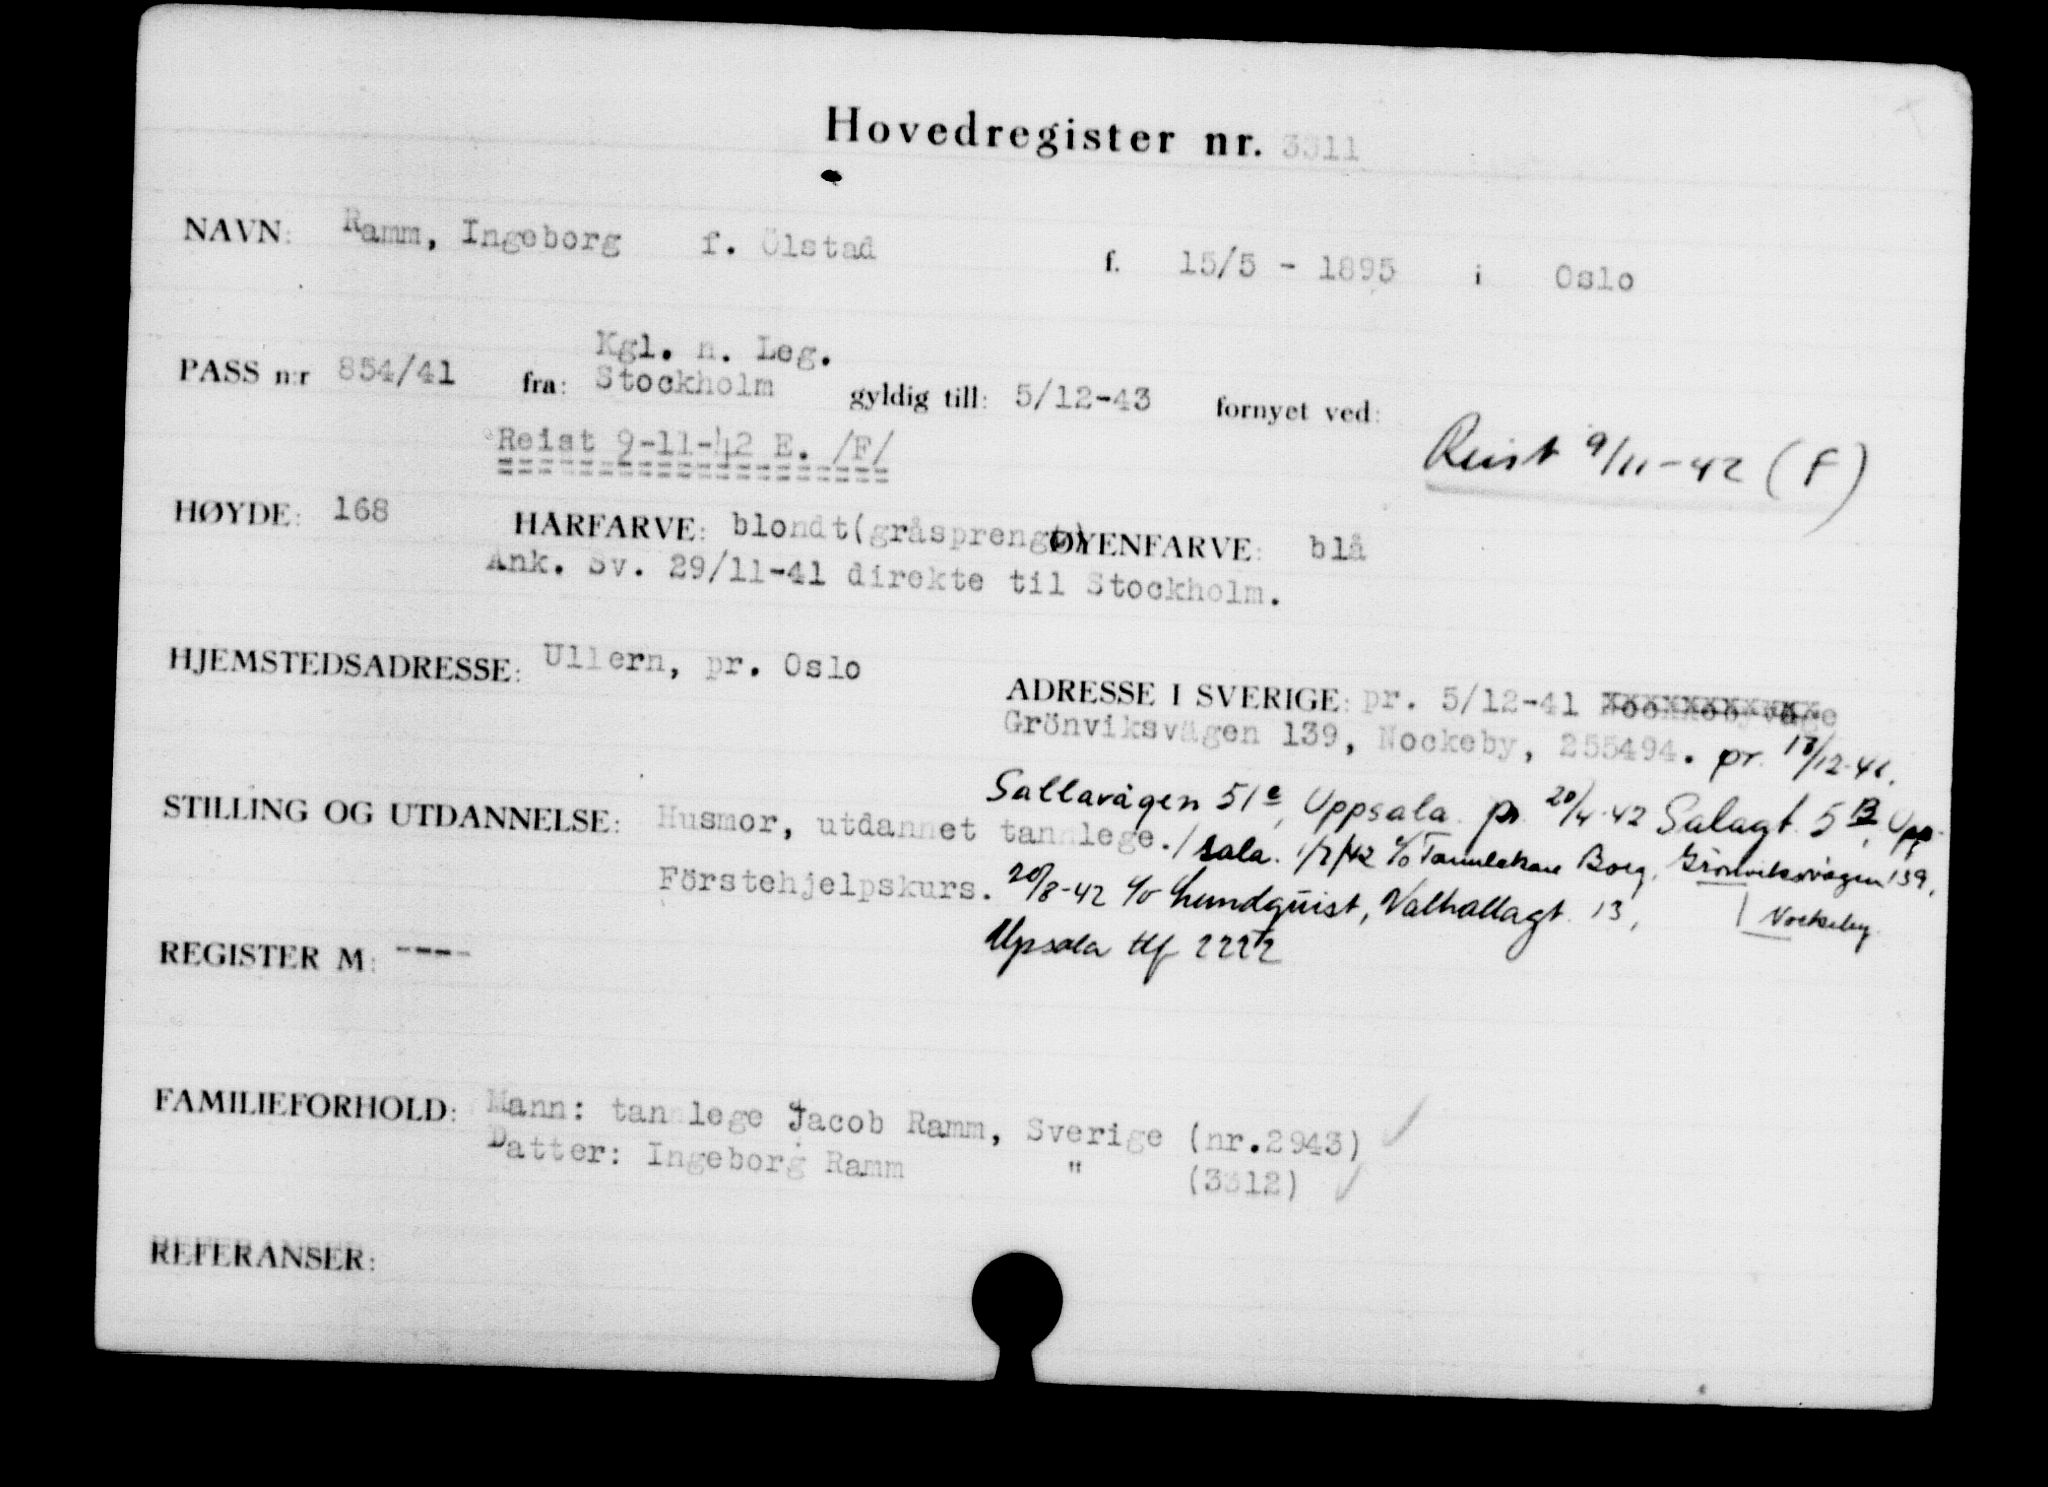 Hovedregister nr. 3311
NAVN: Ramm, Ingeborg f. Ölstad f. 15/5 - 1895 i Oslo
Kgl. n. Leg.
PASS n:r 854/41 fra: Stockholm gyldig till: 5/12-43 fornyet ved:
Reist 9-11-42 E. /F/
Reist 9/11-42 (F)
HØYDE: 168 HÅRFARVE: blondt(gråsprengt) ØYENFARVE: blå
Ank. Sv. 29/11-41 direkte til Stockholm.
HJEMSTEDSADRESSE: Ullern, pr. Oslo
ADRESSE I SVERIGE: pr. 5/12-41
Grönviksvägen 139, Nockeby, 255494. pr. 17/12-41.
Sallavägen 51 c, Uppsala. pr 20/4-42 Salagt. 5 B, Upp-
STILLING OG UTDANNELSE: Husmor, utdannet tannlege./ sala. 1/7/42 c/o Tannlekare Borg, Grönviksvägen 139,
Nockeby.
Förstehjelpskurs. 20/8-42 c/o Lundquist, Valhallagt. 13,
Upsala tlf 22272
REGISTER M: ----
FAMILIEFORHOLD: Mann: tannlege Jacob Ramm, Sverige (nr.2943)
Datter: Ingeborg Ramm " (3312)
REFERANSER: